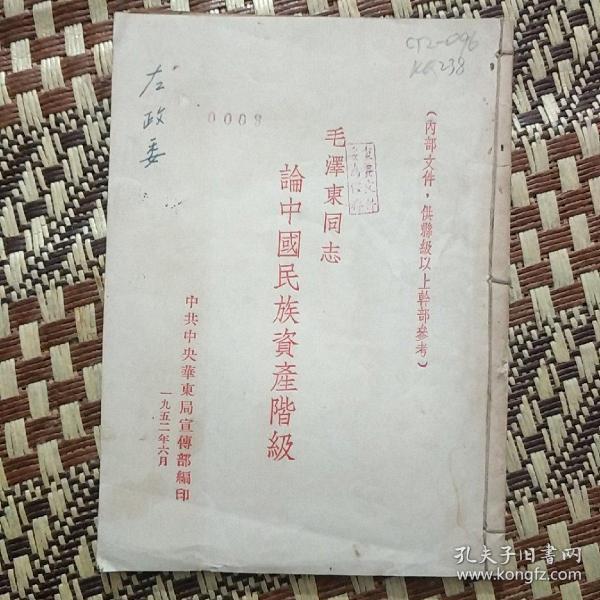 CT2-096
KG238
（內部文件，供縣級以上幹部參考）
毛澤東同志
論中國民族資產階級
中共中央華東局宣傳部編印
一九五二年六月
0009
左政委
孔夫子旧書网
www.kongfz.com